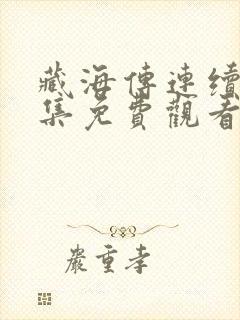 藏海傳連續
集免費觀看
嚴重孝